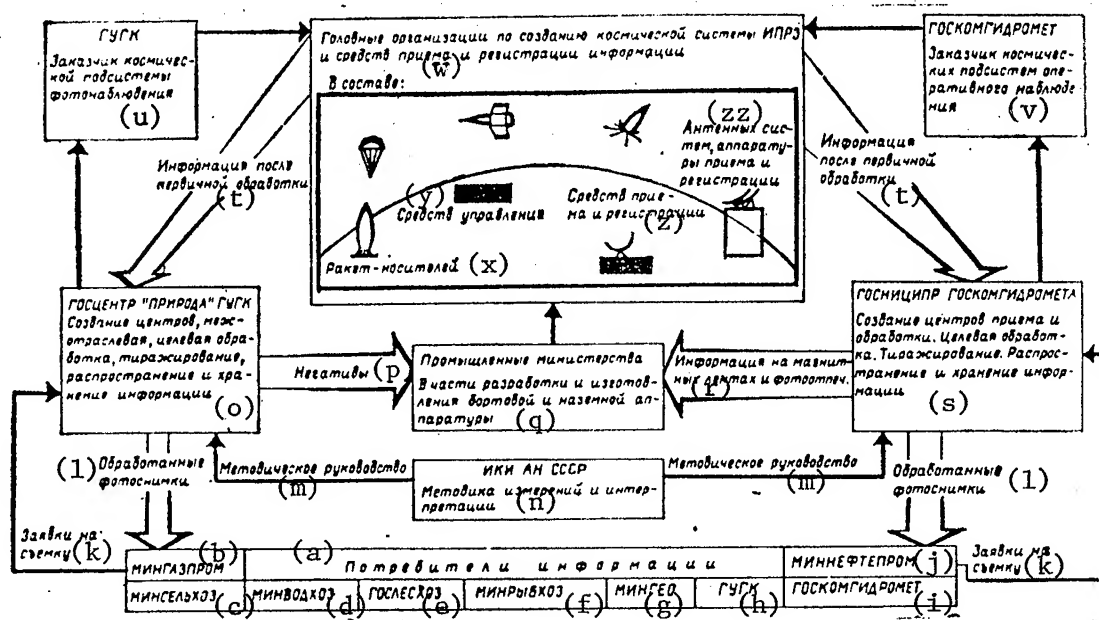 ГУГК
Заказчик космичес-
кой подсистемы
фотонаблюдения
(u)
Головные организации по созданию космической системы ИПРЗ
и средств приема и регистрации информации
(w)
В составе:
(zz)
Антенных сис-
тем, аппарату-
ры приема и
регистрации
(y)
Средств управления
Средств прие-
ма и регистрации
(z)
Ракет-носителей (x)
ГОСКОМГИДРОМЕТ
Заказчик космичес-
ких подсистем опе-
ративного наблюде-
ния
(v)
Информация после
первичной обработки
(t)
Информация
после первичной
обработки
(t)
ГОСЦЕНТР "ПРИРОДА" ГУГК
Создание центров, меж-
отраслевая, целевая обра-
ботка, тиражирование,
распространение и хра-
нение информации
(o)
Негативы (p)
Промышленные министерства
В части разработки и изготов-
ления бортовой и наземной ап-
паратуры
(q)
Информация на магнит-
ных лентах и фотоотпеч.
(r)
ГОСНИЦИПР ГОСКОМГИДРОМЕТА
Создание центров приема и
обработки. Целевая обработ-
ка. Тиражирование. Распрос-
транение и хранение инфор-
мации
(s)
(l) Обработанные
фотоснимки
Методическое руководство
(m)
ИКИ АН СССР
Методика измерений и интер-
претации
(n)
Методическое руководство
(m)
Обработанные
фотоснимки (l)
Заявки на
съемку (k)
МИНГАЗПРОМ (b)
(a)
Потребители информации
МИННЕФТЕПРОМ (j)
Заявки на
съемку (k)
МИНСЕЛЬХОЗ (c) МИНВОДХОЗ (d) ГОСЛЕСХОЗ (e) МИНРЫБХОЗ (f) МИНГЕО (g) ГУГК (h) ГОСКОМГИДРОМЕТ (i)